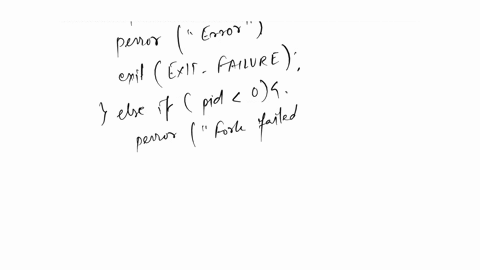 perror ("Error")
exit (EXIT_FAILURE);
} else if ( pid < 0){
perror ("Fork failed